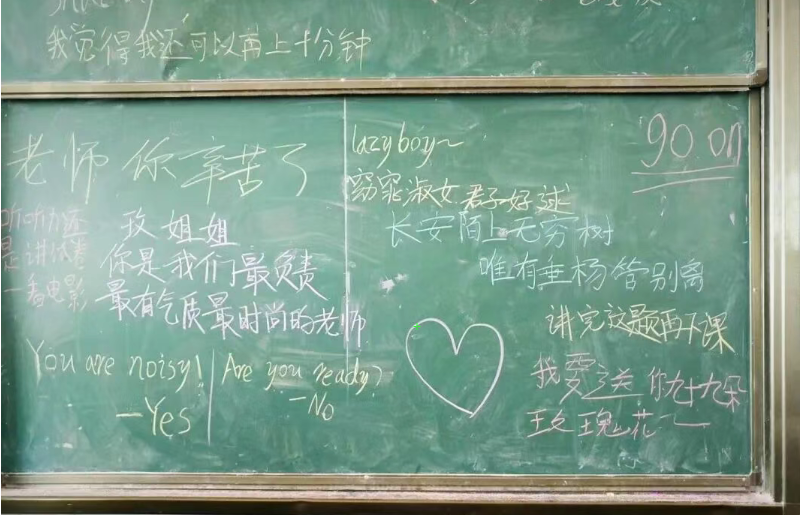 我觉得我还可以再上十分钟
老师 你辛苦了
玫姐姐
你是我们最负责
最有气质最时尚的老师
一看电影
You are noisy!
-Yes
Are you ready?
-No
lazy boy~
窈窕淑女 君子好逑
长安陌上无穷树
唯有垂杨管别离
go on
讲完这题再下课
我要送你九十九朵
玫瑰花~